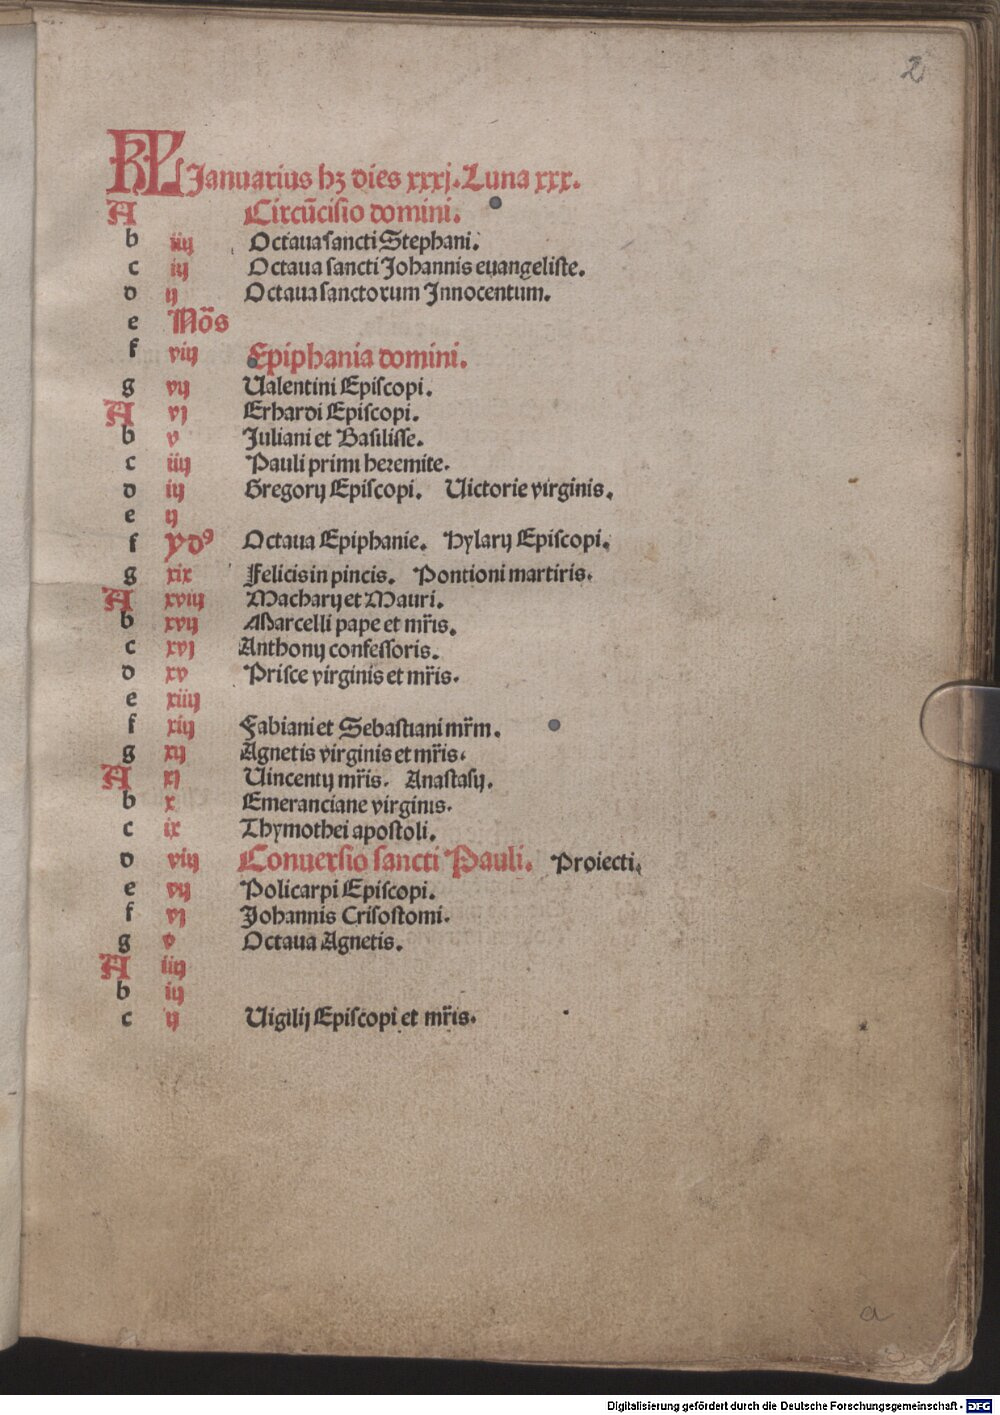 2
KL Januarius hꝫ dies xxxj. Luna xxx.
A Circūcisio domini.
b iiij Octaua sancti Stephani.
c iij Octaua sancti Johannis euangeliste.
d ij Octaua sanctorum Innocentum.
e Nōs
f viij Epiphania domini.
g vij Ualentini Episcopi.
A vj Erhardi Episcopi.
b v Juliani et Basilisse.
c iiij Pauli primi heremite.
d iij Gregorij Episcopi. Uictorie virginis.
e ij
f ydꝰ Octaua Epiphanie. Hylarij Episcopi.
g xix Felicis in pincis. Pontioni martiris.
A xviij Macharij et Mauri.
b xvij Marcelli pape et mr̄is.
c xvj Anthonij confessoris.
d xv Prisce virginis et mr̄is.
e xiiij
f xiij Fabiani et Sebastiani mr̄m.
g xij Agnetis virginis et mr̄is.
A xj Uincentij mr̄is. Anastasij.
b x Emeranciane virginis.
c ix Thymothei apostoli.
d viij Conuersio sancti Pauli. Proiecti.
e vij Policarpi Episcopi.
f vj Johannis Crisostomi.
g v Octaua Agnetis.
A iiij
b iij
c ij Uigilij Episcopi et mr̄is.
a
Digitalisierung gefördert durch die Deutsche Forschungsgemeinschaft - DFG